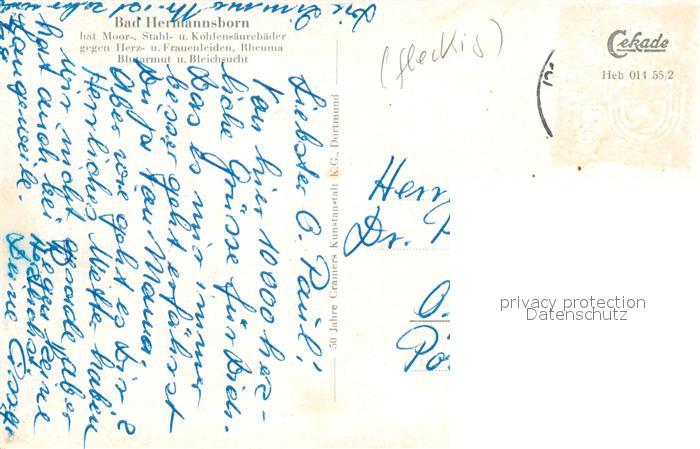 Bad Hermannsborn
hat Moor-, Stahl- u. Kohlensäurebäder
gegen Herz- u. Frauenleiden, Rheuma
Blutarmut u. Bleichsucht
Liebster O. Paul!
Von hier 10000 herz-
liche Grüsse für Dich.
Das es mir immer
besser geht erfährst
Du ja von Mama.
Aber wie geht es Dir?
Herrliches Wetter haben
wir nicht gerade, aber
hat auch bei Regen keine
Langeweile.
Herzlichst
Deine
50 Jahre Cramers Kunstanstalt K.G., Dortmund
(fleckig)
Cekade
Heb 011 55/2
Herr
Dr.
privacy protection
Datenschutz